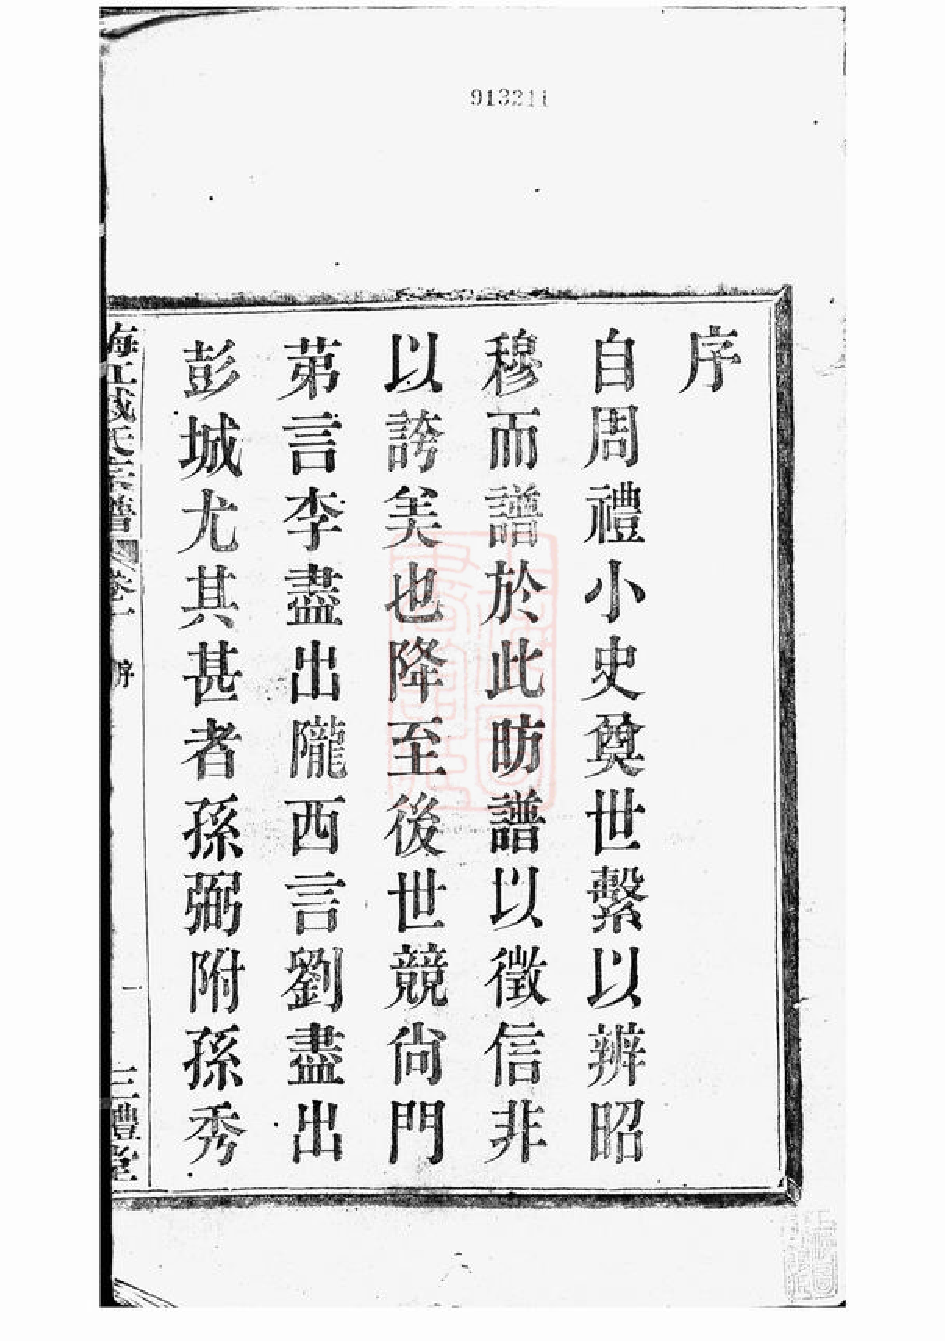 913211
序
自周禮小史奠世繫以辨昭
穆而譜於此昉譜以徵信非
以誇美也降至後世競尙門
第言李盡出隴西言劉盡出
彭城尤其甚者孫弼附孫秀
海江戚氏宗譜 卷一 序 一 三禮堂